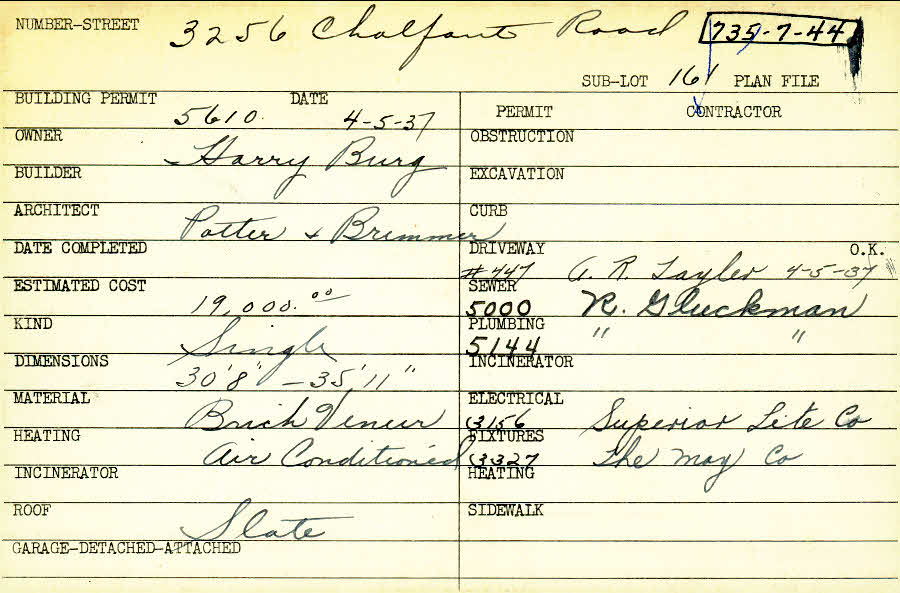 NUMBER-STREET 3256 Chalfant Road 735-7-44
SUB-LOT 161 PLAN FILE
BUILDING PERMIT 5610 DATE 4-5-37
OWNER Harry Burg
BUILDER
ARCHITECT Potter & Bremmer
DATE COMPLETED
ESTIMATED COST 19,000.00
KIND Single
DIMENSIONS 30'8" - 35'11"
MATERIAL Brick Veneur
HEATING Air Conditioned
INCINERATOR
ROOF Slate
GARAGE-DETACHED-ATTACHED
PERMIT CONTRACTOR
OBSTRUCTION
EXCAVATION
CURB
DRIVEWAY O.K.
#447 A. R. Tayler 4-5-37
SEWER
5000 R. Gluckman
PLUMBING
5144 " "
INCINERATOR
ELECTRICAL
3156 Superior Lite Co
FIXTURES
3327 The May Co
HEATING
SIDEWALK